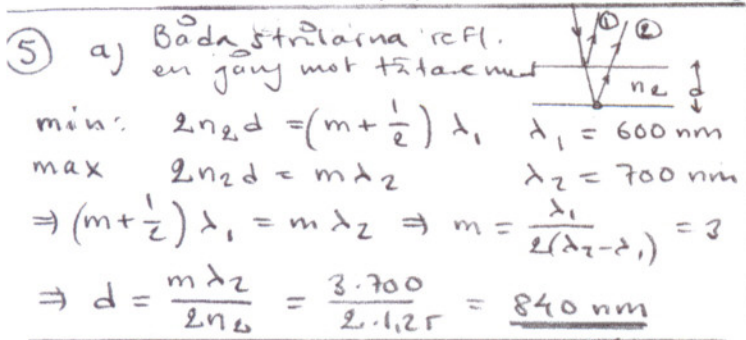 ⑤ a) Båda strålarna refl. ① ②
en gång mot tätare med n₂ d
min: 2n₂d = (m + 1/2) λ₁ λ₁ = 600 nm
max 2n₂d = mλ₂ λ₂ = 700 nm
⇒ (m + 1/2) λ₁ = m λ₂ ⇒ m = λ₁/2(λ₂-λ₁) = 3
⇒ d = mλ₂/2n₂ = 3·700/2·1,25 = 840 nm